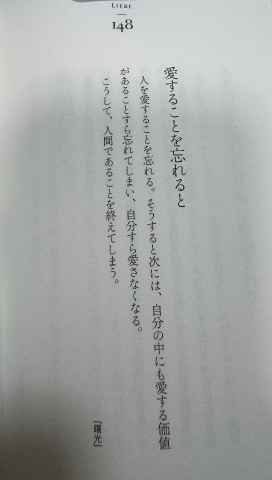 LIEBE
148
愛することを忘れると
人を愛することを忘れる。そうすると次には、自分の中にも愛する価値
があることすら忘れてしまい、自分すら愛さなくなる。
こうして、人間であることを終えてしまう。
『曙光』